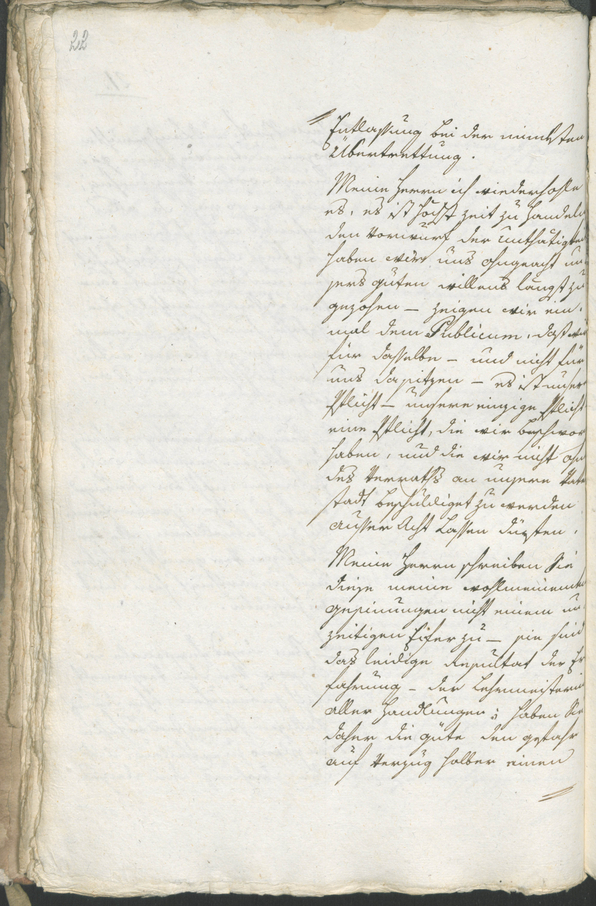 22
Entlassung bei der mindesten
Übertrettung.
Meine Herrn ich wiederhohle
es, es ist höchst zeit zu handeln
den Vorwurf der unthätigkeit
haben wir uns ohngeacht un
sers guten willens längst zu
gezohen — zeigen wir ein
mal dem Publicum, daß wir
für dasselbe — und nicht für
uns dasitzen — es ist unsere
Pflicht — unsere einzige Pflicht
eine Pflicht, die wir beschwor
haben, und die wir nicht ohn
des Verraths an unsere Vate
stadt beschuldiget zu werden
ausser Acht lassen dürften.
Meine Herrn schreiben Sie
diese meine wohlmeinende
gesinnungen nicht einem un
zeitigen Eifer zu — sie sind
das leidige Resultat der Er
fahrung — der Lehrmeisterin
aller Handlungen; haben Sie
daher die güte den gefahr
auf Verzug halber einen